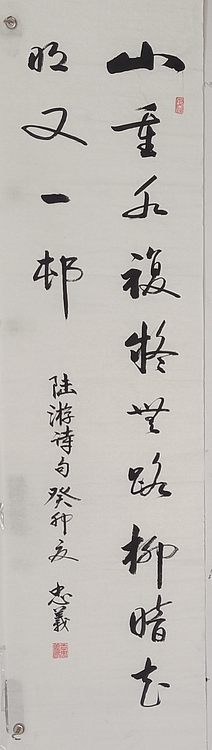 山重水複疑無路柳暗花
明又一邨
陸游詩句癸卯夏忠義